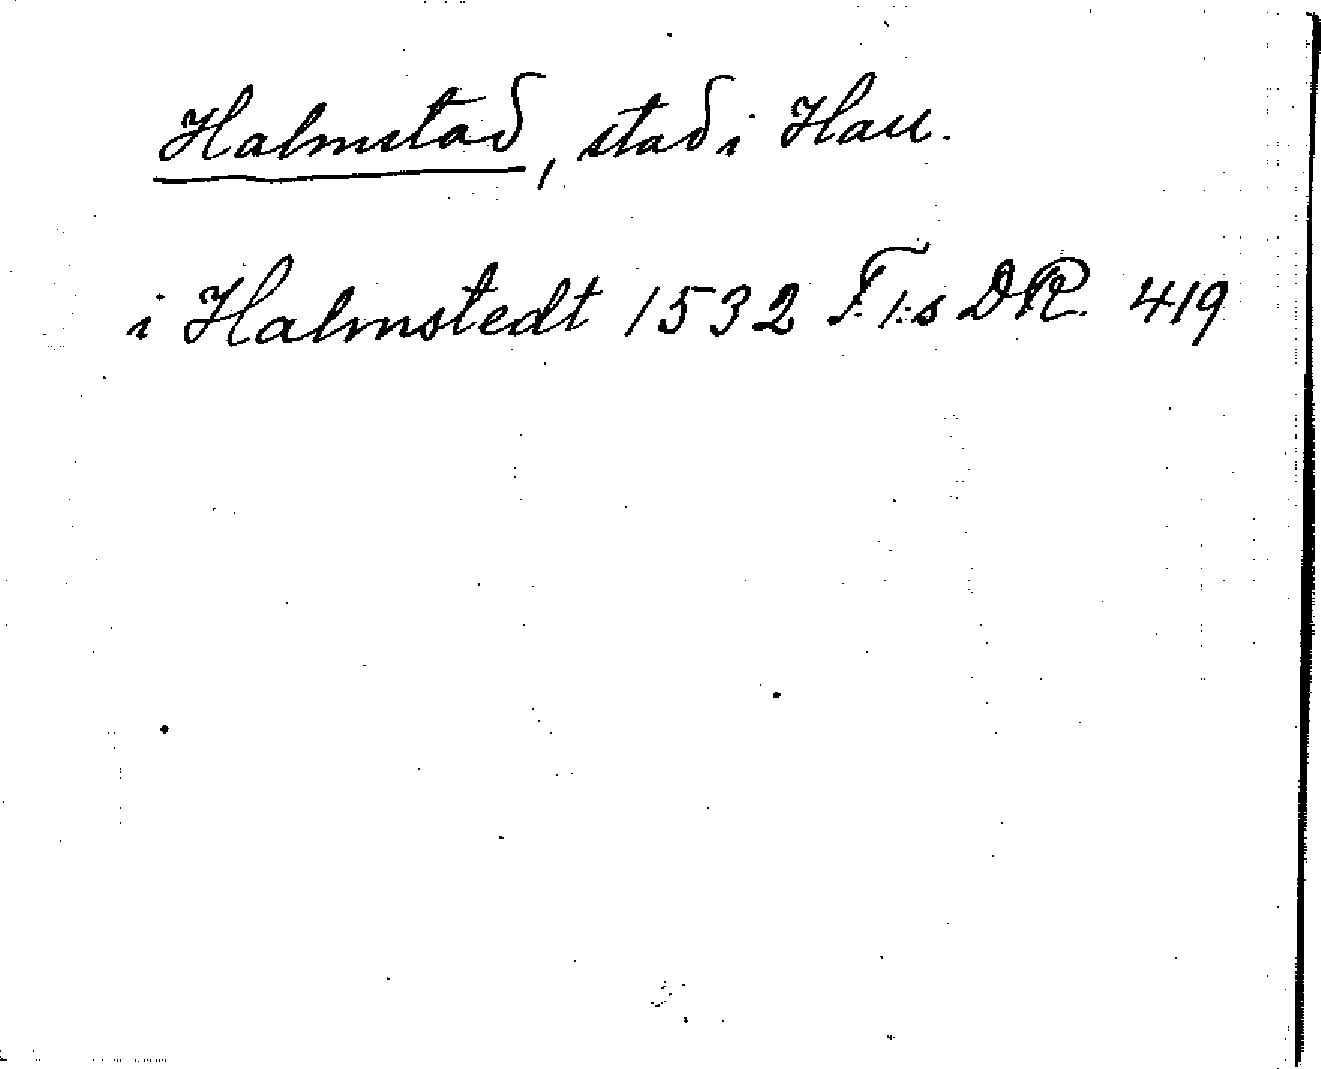 Halmstad, stad i Hall.
i Halmstedt 1532 F. I:s DR. 419